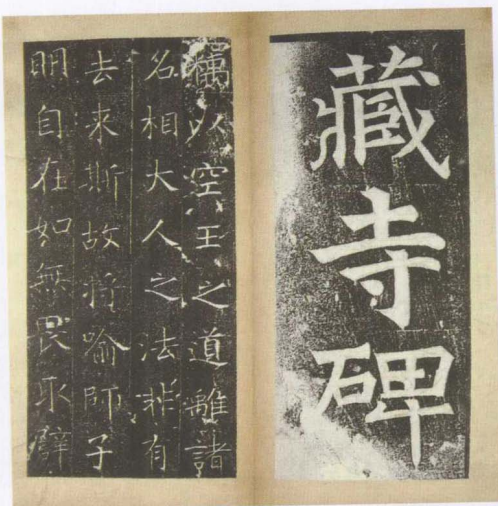 藏寺碑
竊以空王之道離諸
名相大人之法非有
去来斯故将喻師子
明自在如無畏取譬